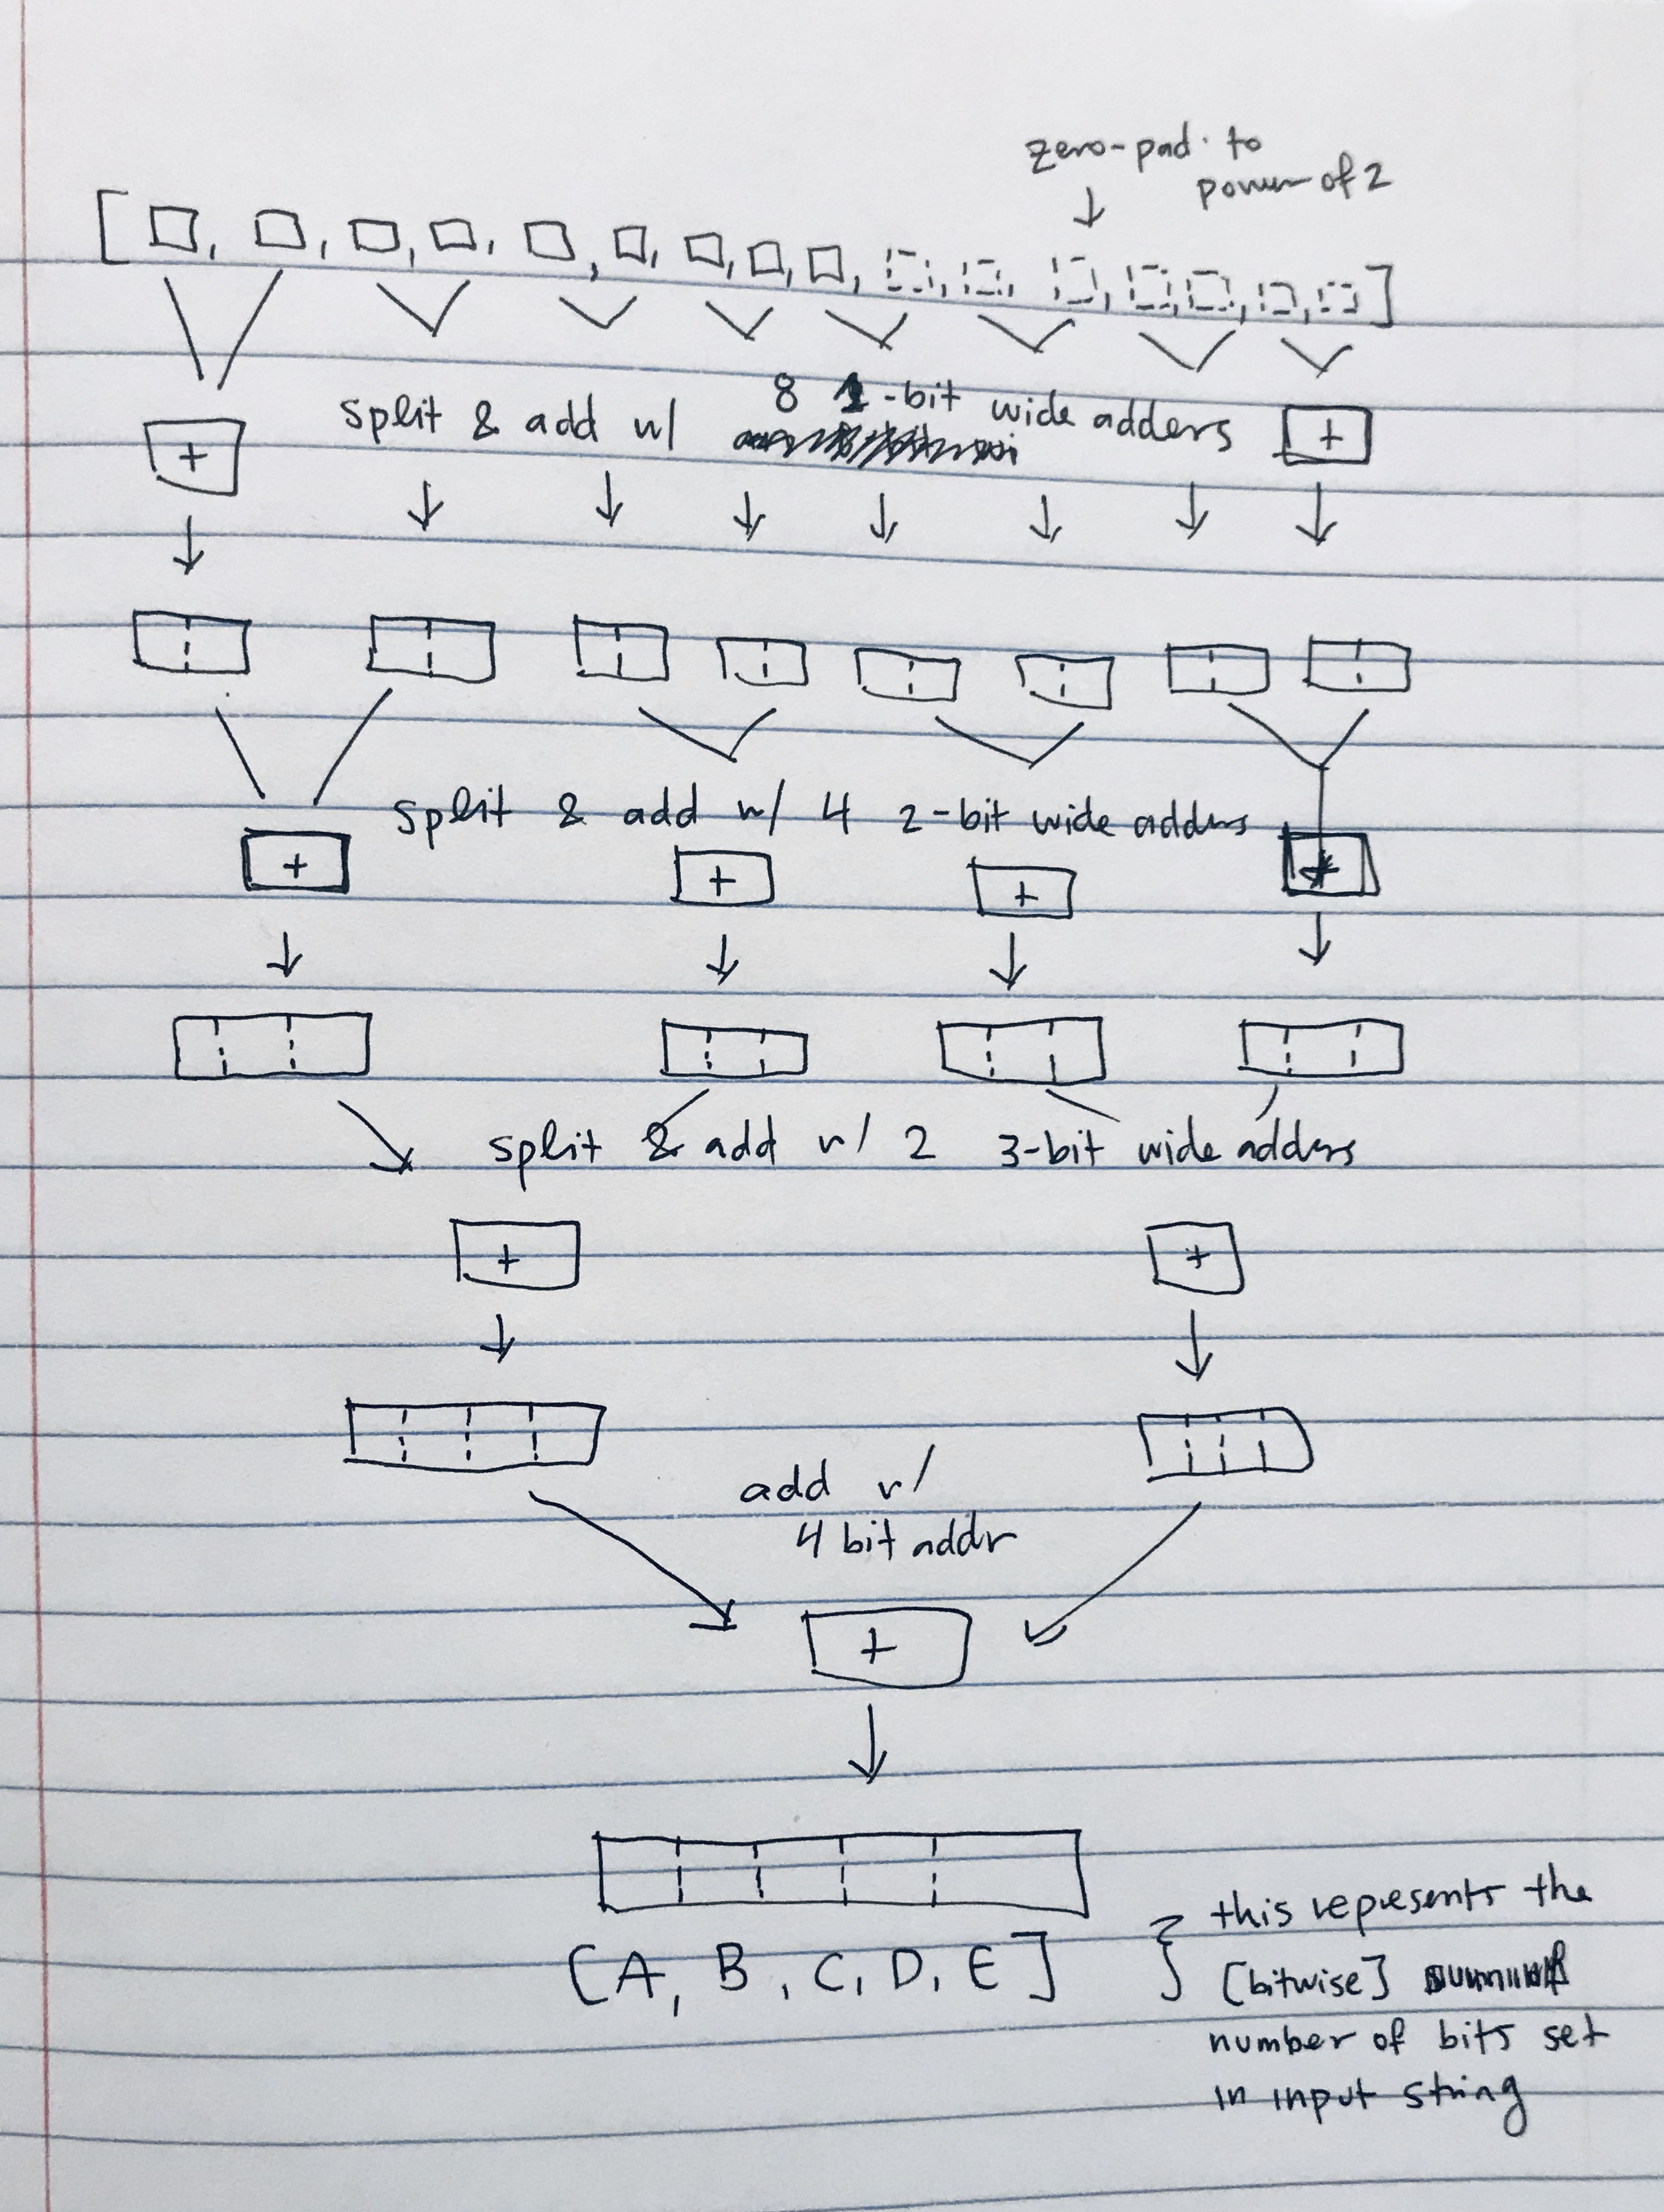 zero-pad to
power of 2
split & add w/ 8 1-bit wide adders
+ +
split & add w/ 4 2-bit wide adders
+ + + +
split & add w/ 2 3-bit wide adders
+ +
add w/
4 bit addr
+
[A, B, C, D, E]
this represents the
[bitwise]
number of bits set
in input string